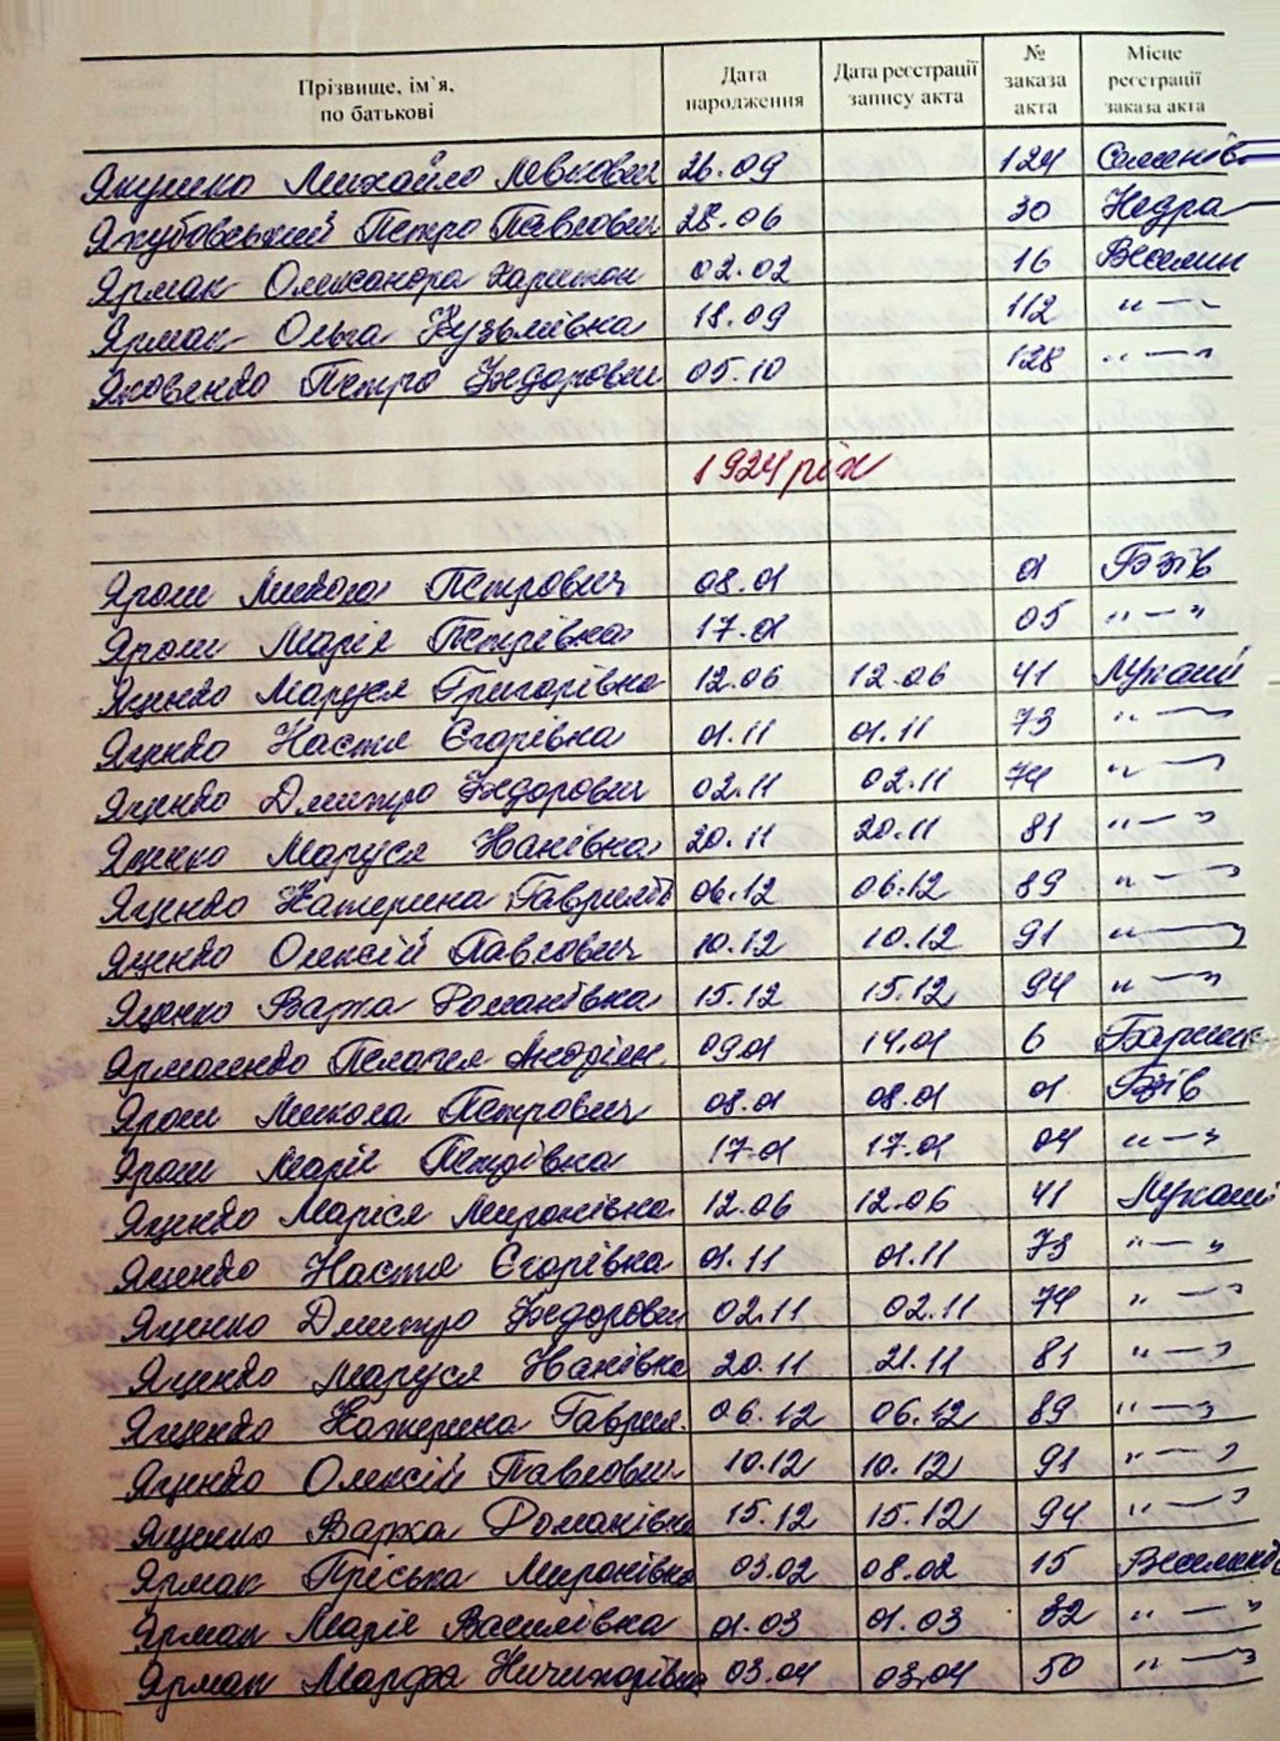 Прізвище, ім`я, по батькові Дата народження Дата реєстрації запису акта № заказа акта Місце реєстрації заказа акта
Якушко Михайло Левкович 26.09 124 Семенів
Якубовський Петро Павлович 28.06 30 Недра
Ярмак Олександра Харитон 02.02 16 Веселин
Ярмак Ольга Кузьмівна 18.09 112 "—"
Яковенко Петро Федорович 05.10 128 "—"
1924 рік
Ярош Микола Петрович 08.01 01 Бзів
Ярош Марія Петрівна 17.01 05 "—"
Яценко Маруся Григорівна 12.06 12.06 41 Лукаші
Яценко Настя Єгорівна 01.11 01.11 73 "—"
Яценко Дмитро Федорович 02.11 02.11 74 "—"
Яценко Маруся Іванівна 20.11 20.11 81 "—"
Яценко Катерина Гаврилів 06.12 06.12 89 "—"
Яценко Олексій Павлович 10.12 10.12 91 "—"
Яценко Варка Романівна 15.12 15.12 94 "—"
Ярмоленко Пелагея Андріян. 09.01 14.01 6 Бариш
Ярош Микола Петрович 08.01 08.01 01 Бзів
Ярош Марія Петрівна 17.01 17.01 04 "—"
Яценко Маріся Миронівна 12.06 12.06 41 Лукаші
Яценко Настя Єгорівна 01.11 01.11 73 "—"
Яценко Дмитро Федорович 02.11 02.11 74 "—"
Яценко Маруся Іванівна 20.11 21.11 81 "—"
Яценко Катерина Гаврил. 06.12 06.12 89 "—"
Яценко Олексій Павлович 10.12 10.12 91 "—"
Яценко Варка Романівна 15.12 15.12 94 "—"
Ярмак Пріська Миронівна 03.02 08.02 15 Веселинів
Ярмак Марія Василівна 01.03 01.03 32 "—"
Ярмак Марфа Ничипорівна 03.04 03.04 50 "—"